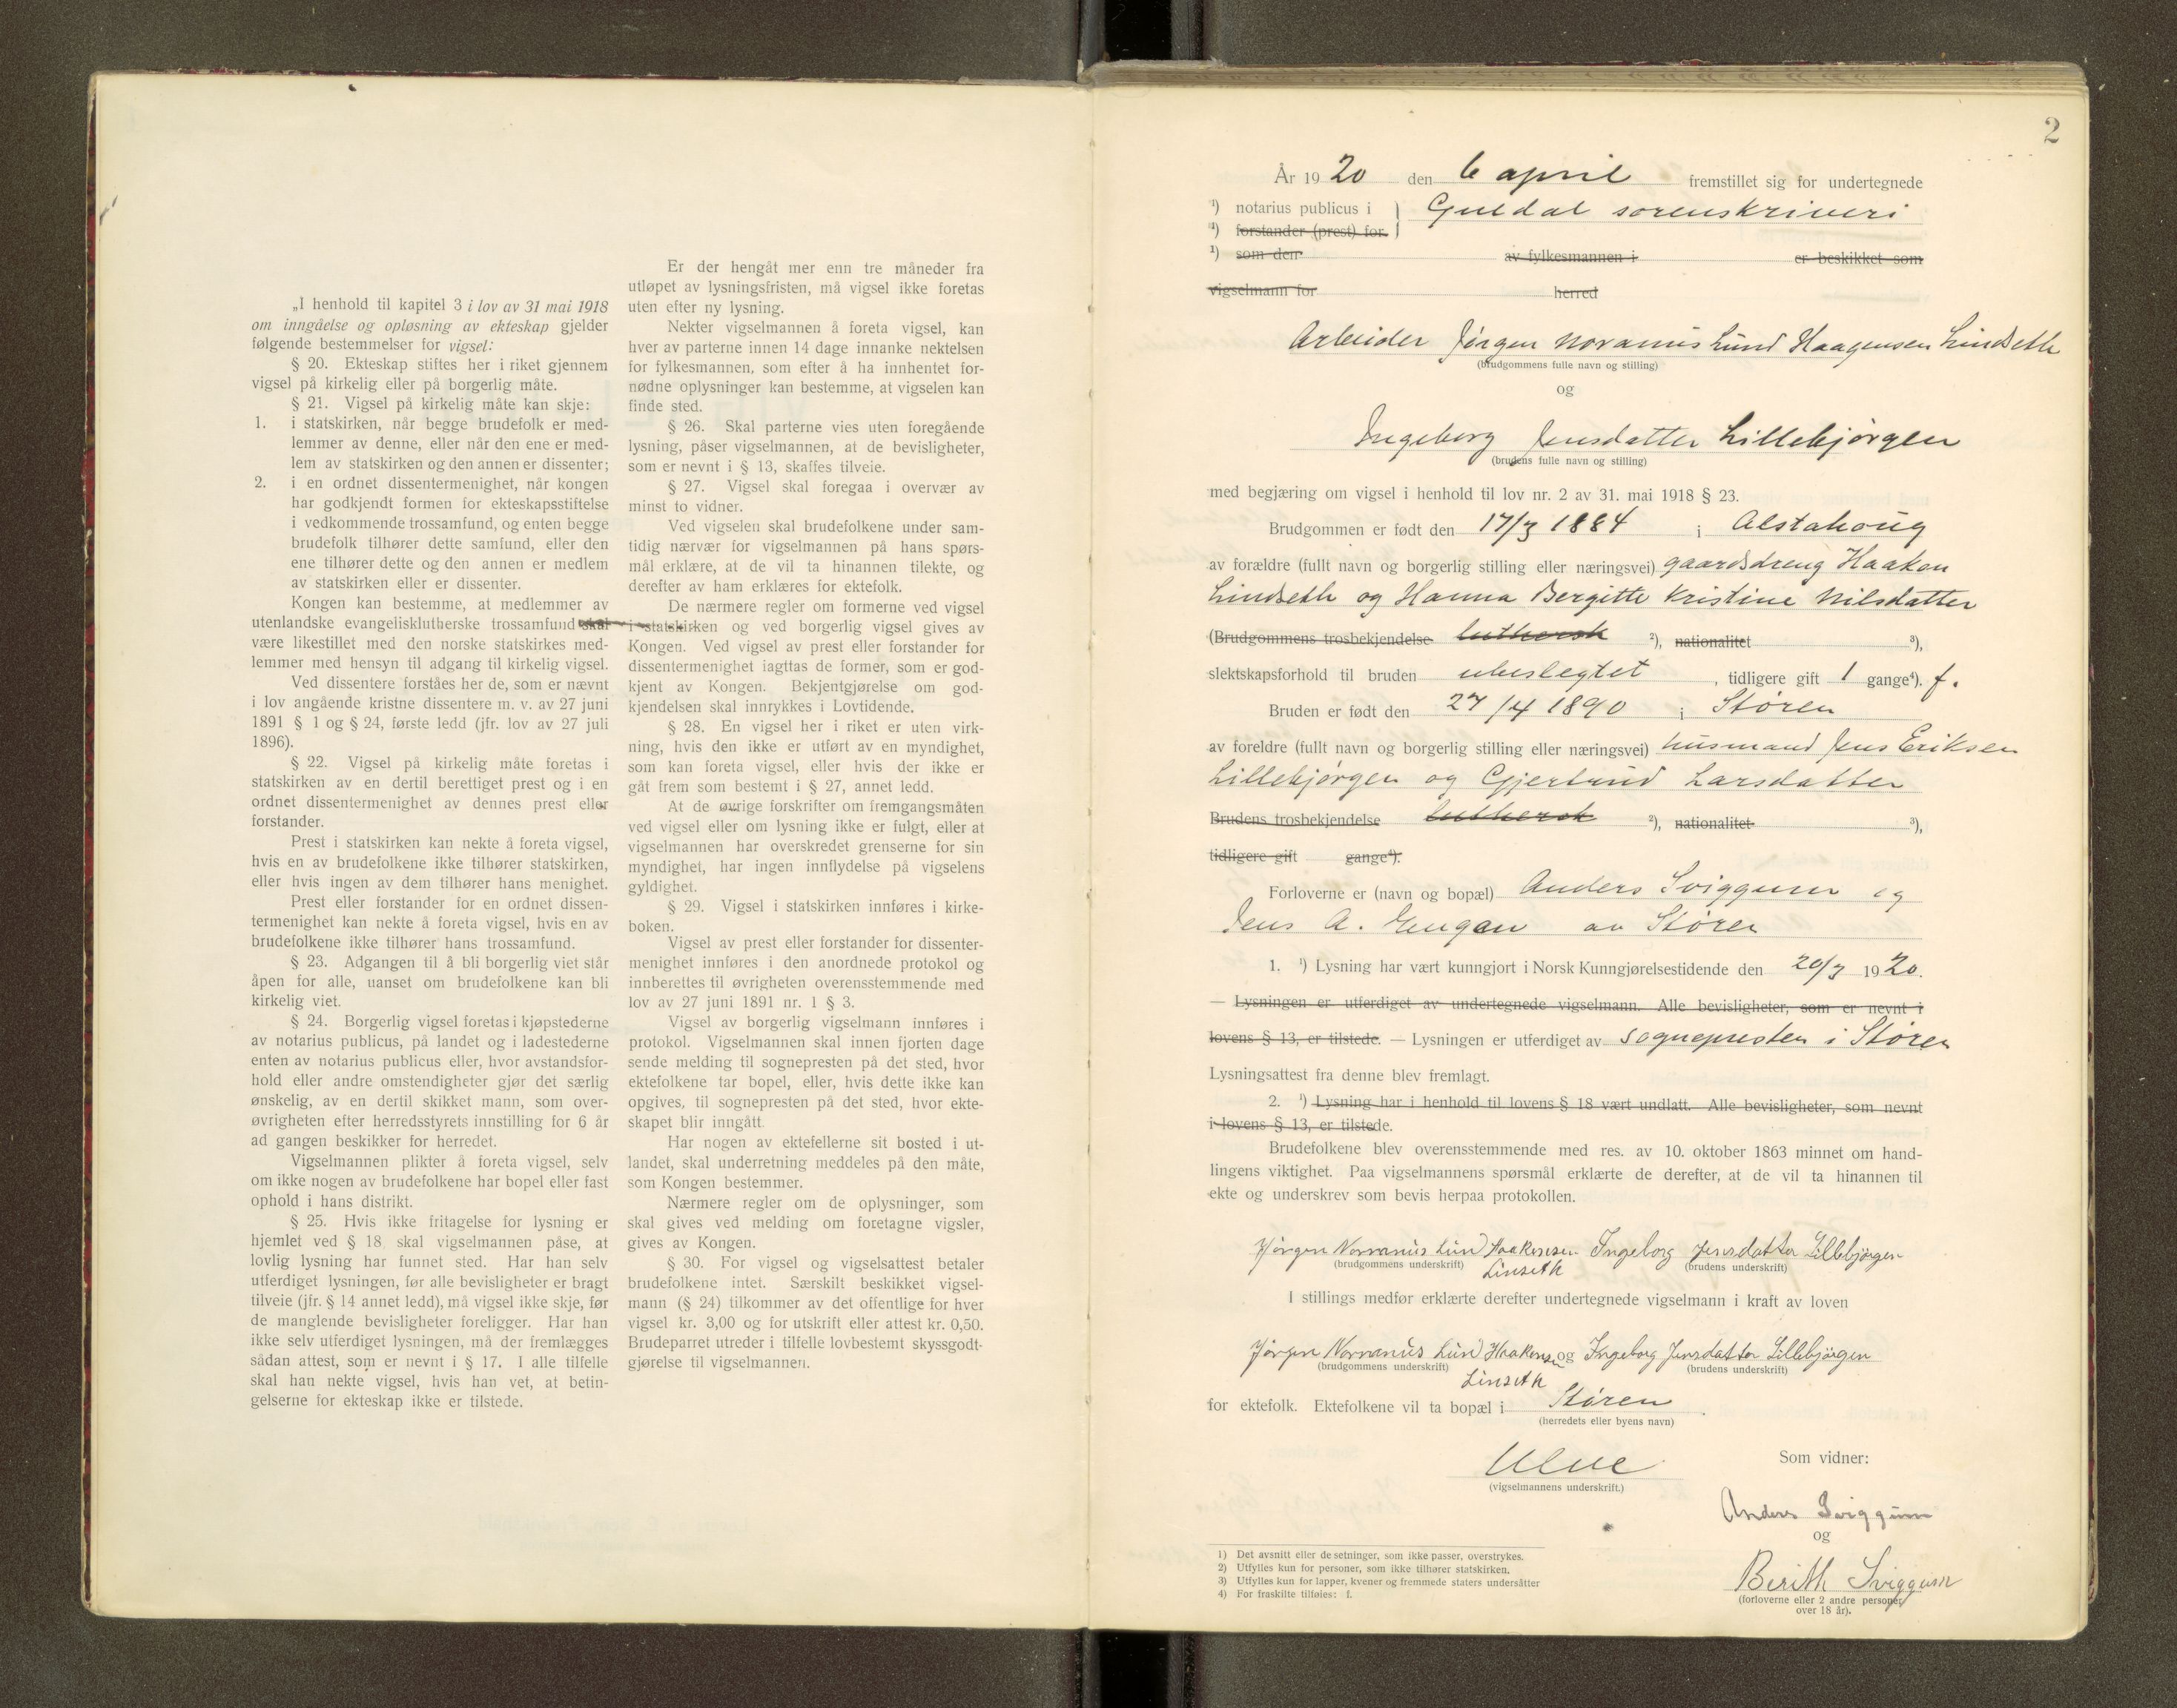 „I henhold til kapitel 3 i lov av 31 mai 1918
om inngåelse og opløsning av ekteskap gjelder
følgende bestemmelser for vigsel:
§ 20. Ekteskap stiftes her i riket gjennem
vigsel på kirkelig eller på borgerlig måte.
§ 21. Vigsel på kirkelig måte kan skje:
1. i statskirken, når begge brudefolk er med-
lemmer av denne, eller når den ene er med-
lem av statskirken og den annen er dissenter;
2. i en ordnet dissentermenighet, når kongen
har godkjendt formen for ekteskapsstiftelse
i vedkommende trossamfund, og enten begge
brudefolk tilhører dette samfund, eller den
ene tilhører dette og den annen er medlem
av statskirken eller er dissenter.
Kongen kan bestemme, at medlemmer av
utenlandske evangelisklutherske trossamfund skal
være likestillet med den norske statskirkes med-
lemmer med hensyn til adgang til kirkelig vigsel.
Ved dissentere forståes her de, som er nævnt
i lov angående kristne dissentere m. v. av 27 juni
1891 § 1 og § 24, første ledd (jfr. lov av 27 juli
1896).
§ 22. Vigsel på kirkelig måte foretas i
statskirken av en dertil berettiget prest og i en
ordnet dissentermenighet av dennes prest eller
forstander.
Prest i statskirken kan nekte å foreta vigsel,
hvis en av brudefolkene ikke tilhører statskirken,
eller hvis ingen av dem tilhører hans menighet.
Prest eller forstander for en ordnet dissen-
termenighet kan nekte å foreta vigsel, hvis en av
brudefolkene ikke tilhører hans trossamfund.
§ 23. Adgangen til å bli borgerlig viet står
åpen for alle, uanset om brudefolkene kan bli
kirkelig viet.
§ 24. Borgerlig vigsel foretas i kjøpstederne
av notarius publicus, på landet og i ladestederne
enten av notarius publicus eller, hvor avstandsfor-
hold eller andre omstendigheter gjør det særlig
ønskelig, av en dertil skikket mann, som over-
øvrigheten efter herredsstyrets innstilling for 6 år
ad gangen beskikker for herredet.
Vigselmannen plikter å foreta vigsel, selv
om ikke nogen av brudefolkene har bopel eller fast
ophold i hans distrikt.
§ 25. Hvis ikke fritagelse for lysning er
hjemlet ved § 18 skal vigselmannen påse, at
lovlig lysning har funnet sted. Har han selv
utferdiget lysningen, før alle bevisligheter er bragt
tilveie (jfr. § 14 annet ledd), må vigsel ikke skje, før
de manglende bevisligheter foreligger. Har han
ikke selv utferdiget lysningen, må der fremlægges
sådan attest, som er nevnt i § 17. I alle tilfelle
skal han nekte vigsel, hvis han vet, at betin-
gelserne for ekteskap ikke er tilstede.
Er der hengåt mer enn tre måneder fra
utløpet av lysningsfristen, må vigsel ikke foretas
uten efter ny lysning.
Nekter vigselmannen å foreta vigsel, kan
hver av parterne innen 14 dage innanke nektelsen
for fylkesmannen, som efter å ha innhentet for-
nødne oplysninger kan bestemme, at vigselen kan
finde sted.
§ 26. Skal parterne vies uten foregående
lysning, påser vigselmannen, at de bevisligheter,
som er nevnt i § 13, skaffes tilveie.
§ 27. Vigsel skal foregaa i overvær av
minst to vidner.
Ved vigselen skal brudefolkene under sam-
tidig nærvær for vigselmannen på hans spørs-
mål erklære, at de vil ta hinannen tilekte, og
derefter av ham erklæres for ektefolk.
De nærmere regler om formerne ved vigsel
i statskirken og ved borgerlig vigsel gives av
Kongen. Ved vigsel av prest eller forstander for
dissentermenighet iagttas de former, som er god-
kjent av Kongen. Bekjentgjørelse om god-
kjendelsen skal innrykkes i Lovtidende.
§ 28. En vigsel her i riket er uten virk-
ning, hvis den ikke er utført av en myndighet,
som kan foreta vigsel, eller hvis der ikke er
gåt frem som bestemt i § 27, annet ledd.
At de øvrige forskrifter om fremgangsmåten
ved vigsel eller om lysning ikke er fulgt, eller at
vigselmannen har overskredet grenserne for sin
myndighet, har ingen innflydelse på vigselens
gyldighet.
§ 29. Vigsel i statskirken innføres i kirke-
boken.
Vigsel av prest eller forstander for dissenter-
menighet innføres i den anordnede protokol og
innberettes til øvrigheten overensstemmende med
lov av 27 juni 1891 nr. 1 § 3.
Vigsel av borgerlig vigselmann innføres i
protokol. Vigselmannen skal innen fjorten dage
sende melding til sognepresten på det sted, hvor
ektefolkene tar bopel, eller, hvis dette ikke kan
opgives, til sognepresten på det sted, hvor ekte-
skapet blir inngått.
Har nogen av ektefellerne sit bosted i ut-
landet, skal underretning meddeles på den måte,
som Kongen bestemmer.
Nærmere regler om de oplysninger, som
skal gives ved melding om foretagne vigsler,
gives av Kongen.
§ 30. For vigsel og vigselsattest betaler
brudefolkene intet. Særskilt beskikket vigsel-
mann (§ 24) tilkommer av det offentlige for hver
vigsel kr. 3,00 og for utskrift eller attest kr. 0,50.
Brudeparret utreder i tilfelle lovbestemt skyssgodt-
gjørelse til vigselmannen.
2
År 1920 den 6 april fremstillet sig for undertegnede
¹) notarius publicus i } Guldal sorenskriveri
¹) forstander (prest) for
¹) som den av fylkesmannen i er beskikket som
vigselmann for herred
Arbeider Jørgen Noranius Lund Haagensen Lindseth
(brudgommens fulle navn og stilling)
og
Ingeborg Jensdatter Lillebjørgen
(brudens fulle navn og stilling)
med begjæring om vigsel i henhold til lov nr. 2 av 31. mai 1918 § 23.
Brudgommen er født den 17/3 1884 i Alstahoug
av forældre (fullt navn og borgerlig stilling eller næringsvei) gaardsdreng Haakon
Lindseth og Hanna Bergitte Kristine Nilsdatter
(Brudgommens trosbekjendelse luthersk ²), nationalitet ³),
slektskapsforhold til bruden ubeslegtet, tidligere gift 1 gange⁴). f.
Bruden er født den 27/4 1890 i Støren
av foreldre (fullt navn og borgerlig stilling eller næringsvei) husmand Jens Eriksen
Lillebjørgen og Gjertrud Larsdatter
Brudens trosbekjendelse luthersk ²), nationalitet ³),
tidligere gift gange⁴).
Forloverne er (navn og bopæl) Anders Sviggum og
Jens A. Engan av Støren
1. ¹) Lysning har vært kunngjort i Norsk Kunngjørelsestidende den 20/3 1920.
— Lysningen er utferdiget av undertegnede vigselmann. Alle bevisligheter, som er nevnt i
lovens § 13, er tilstede. — Lysningen er utferdiget av sognepresten i Støren
Lysningsattest fra denne blev fremlagt.
2. ¹) Lysning har i henhold til lovens § 18 vært undlatt. Alle bevisligheter, som nevnt
i lovens § 13, er tilstede.
Brudefolkene blev overensstemmende med res. av 10. oktober 1863 minnet om hand-
lingens viktighet. Paa vigselmannens spørsmål erklærte de derefter, at de vil ta hinannen til
ekte og underskrev som bevis herpaa protokollen.
Jørgen Norranus Lund Haakensen Ingeborg Jensdatter Lillebjørgen
(brudgommens underskrift) Linseth (brudens underskrift)
I stillings medfør erklærte derefter undertegnede vigselmann i kraft av loven
Jørgen Norranus Lund Haakensen og Ingeborg Jensdatter Lillebjørgen
(brudgommens underskrift) Linseth (brudens underskrift)
for ektefolk. Ektefolkene vil ta bopæl i Støren
(herredets eller byens navn)
Ulve
(vigselmannens underskrift.)
Som vidner:
Anders Sviggum
og
Berith Sviggum
(forloverne eller 2 andre personer
over 18 år).
1) Det avsnitt eller de setninger, som ikke passer, overstrykes.
2) Utfylles kun for personer, som ikke tilhører statskirken.
3) Utfylles kun for lapper, kvener og fremmede staters undersåtter
4) For fraskilte tilføies: f.